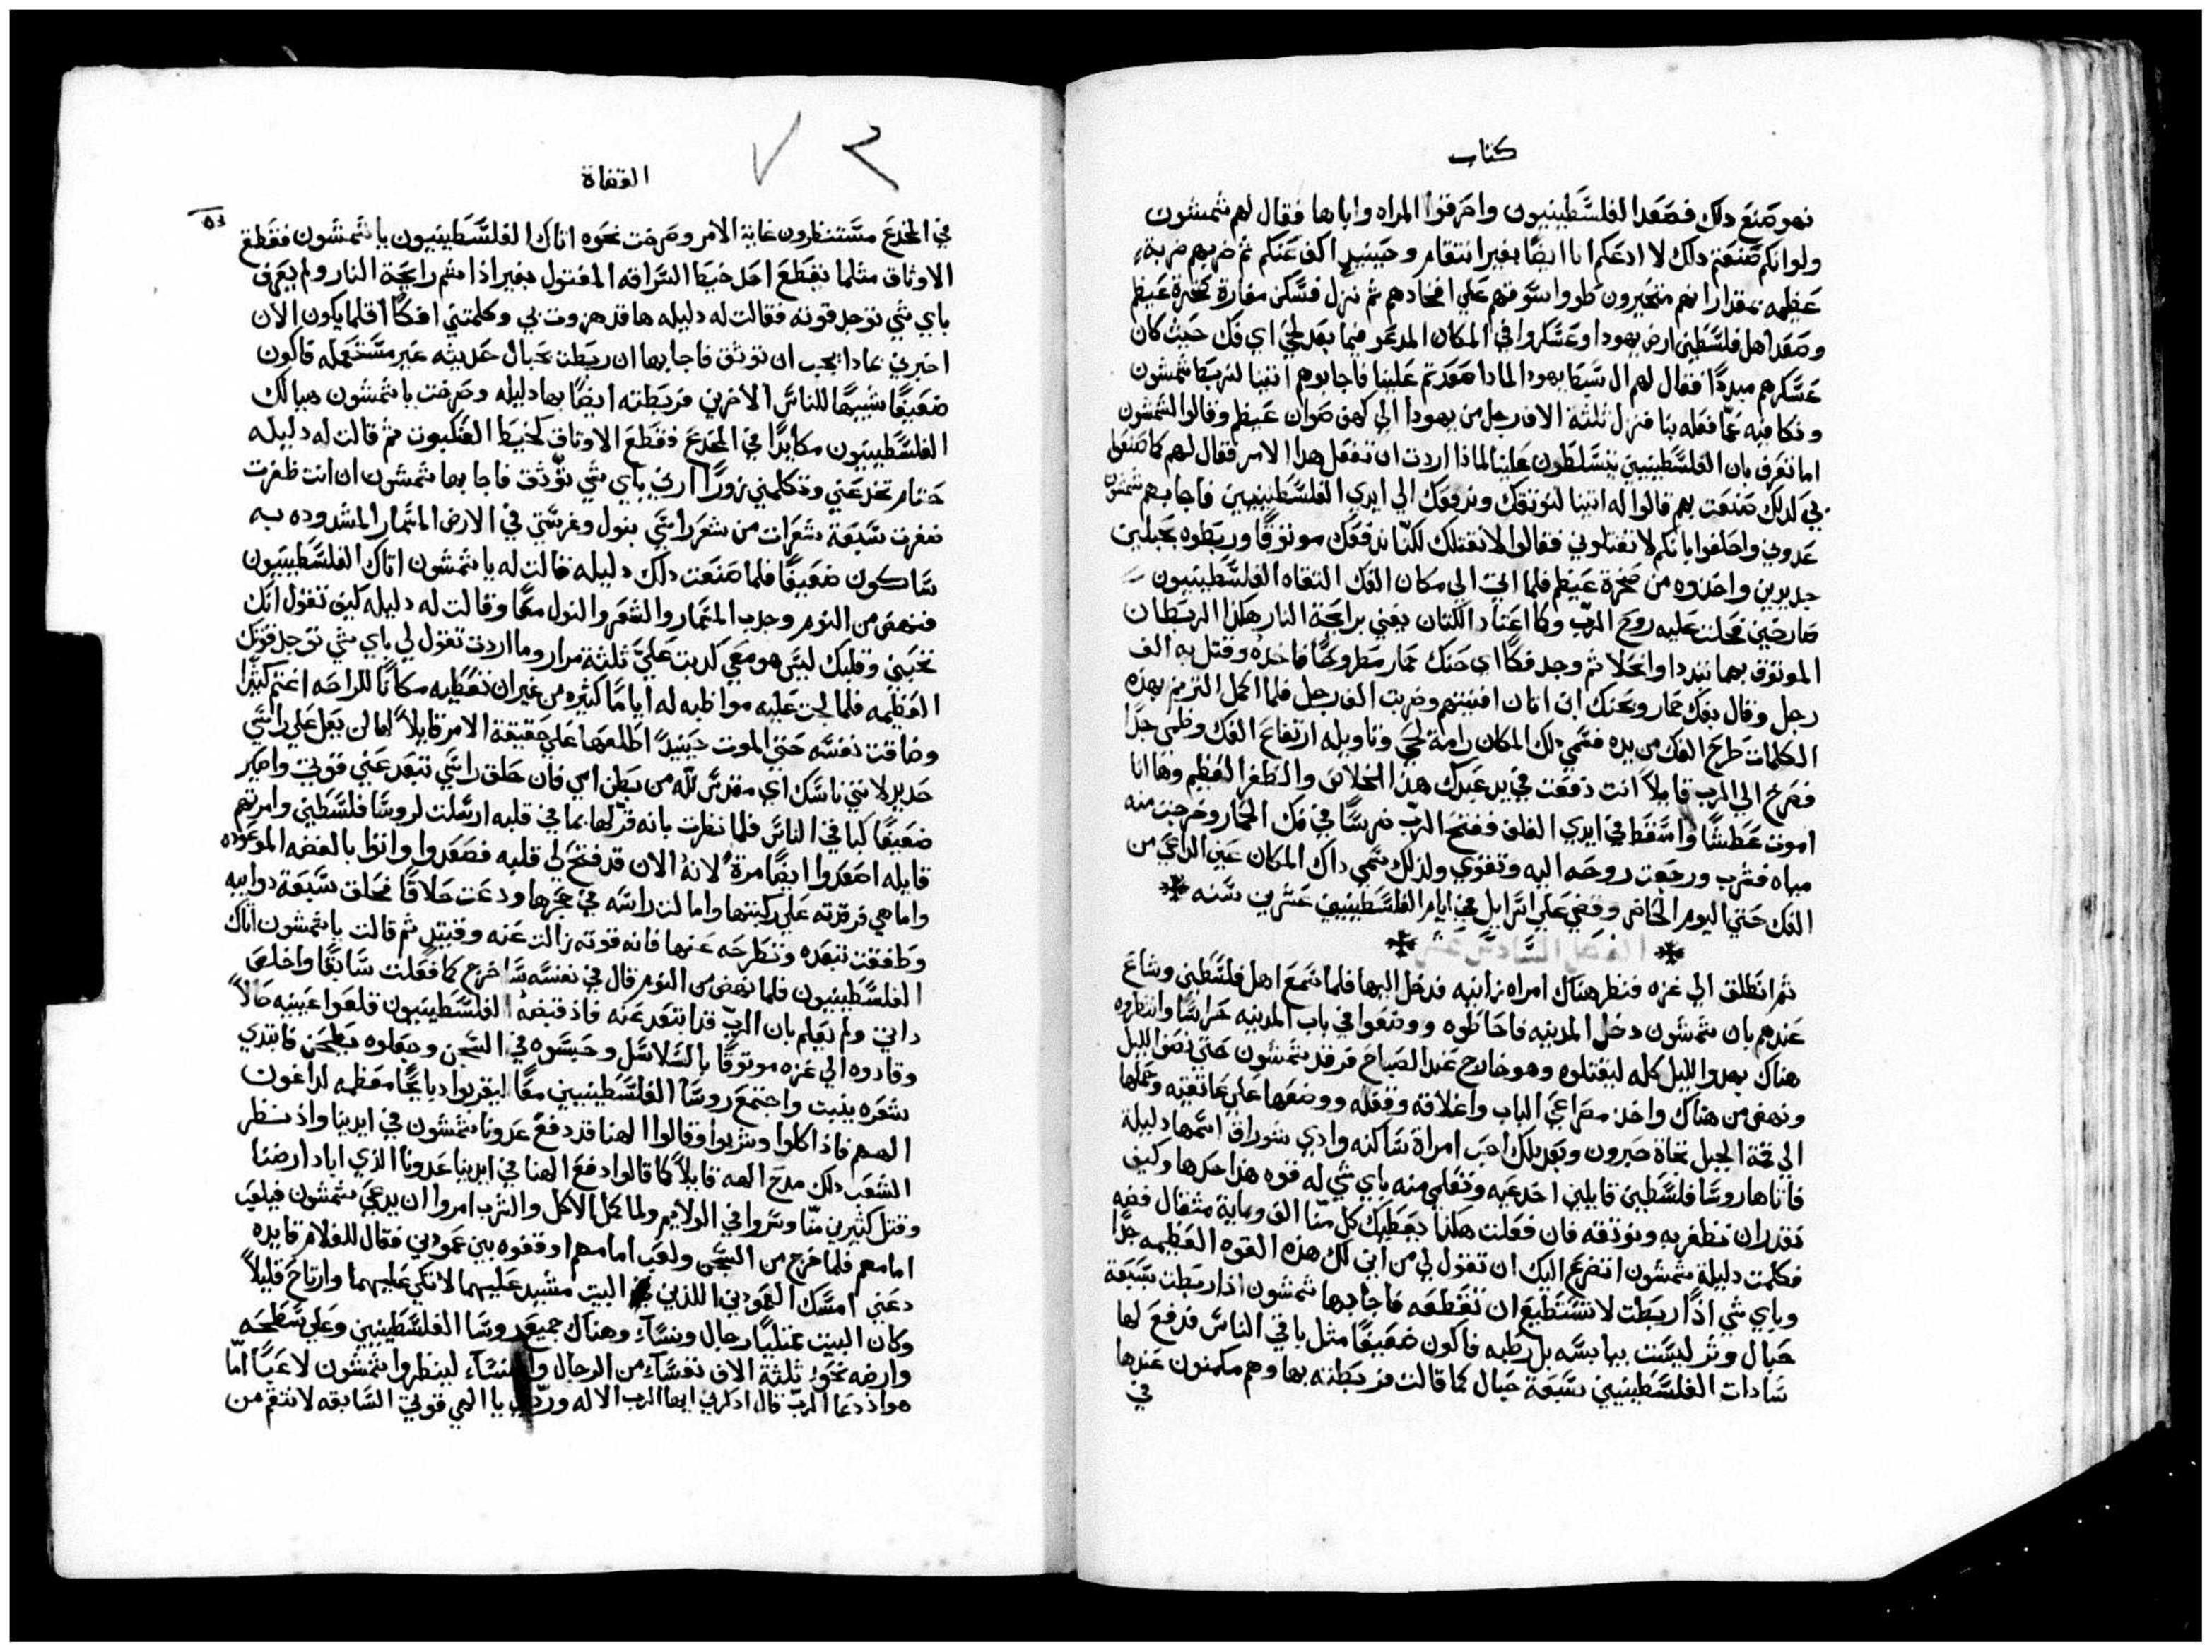 كتاب
فهو صنع دلك فصعد الفلسطينيون واحرقوا المراه واباها فقال لهم شمشون
ولو انكم صنعتم دلك لا ادعكم انا ايضًا بغير انتقام وحينيدٍ اكف عنكم ثم ضربهم ضربة
عظيمه بمقدار انهم متحيرون طووا سوقهم علي افخادهم ثم نزل فسكن مغارة صخرة عيطم
وصعد اهل فلسطين ارض يهودا وعسكروا في المكان المدعو فيما بعد لحي اي فك حيث كان
عسكرهم مبددًا فقال لهم ال سبط يهودا لمادا صعدتم علينا فاجابوهم اتينا لنربط شمشون
ونكافيه عمّا فعله بنا فنزل ثلثة الاف رجل من يهودا الي كهف صوان عيطم وقالوا لشمشون
اما تعرف بان الفلسطينيين يتسلطون علينا لماذا اردت ان تفعل هدا الامر فقال لهم كما صنعوا
بي كدلك صنعت بهم قالوا له اتينا لنوثقك وندفعك الي ايدي الفلسطينيين فاجابهم شمشون
عدوني واحلفوا بانكم لا تقتلوني فقالوا لا نقتلك لكنّا ندفعك موثوقًا وربطوه بحبلين
جديدين واخدوه من صخرة عيطم فلما اتي الي مكان الفك التقاه الفلسطينيون
صارخين فحلت عليه روح الرب وكما اعتاد الكتان يفني برايحة النار هكذا الربطان
الموثوق بهما تبددا وانحلا ثم وجد فكًا اي حنك حمار مطروحًا فاخده وقتل به الف
رجل وقال بفك حمار وبحنك ابن اتان افنيتهم وضربت الف رجل فلما اكمل الترنم بهده
الكلمات طرح الفك من يده فسمي دلك المكان رامة لحي وتاويله ارتفاع الفك وظمي جدًا
فصرخ الي الرب قايلًا انت دفعت في يد عبدك هذا الخلاص والظفر العظيم وها انا
اموت عطشًا واسقط في ايدي الغلف ففتح الرب ضرسًا في فك الحمار وخرجت منه
مياه فشرب ورجعت روحه اليه وتقوي ولدلك سمي داك المكان عين الداعي من
الفك حتي اليوم الحاضر وقضي علي اسراييل في ايام الفلسطينيين عشرين سنه
ثم انطلق الي غزه فنظر هناك امراه زانيه فدخل اليها فلما سمع اهل فلسطين وشاع
عندهم بان شمشون دخل المدينه فاحاطوه ووضعوا في باب المدينه حراسًا وانتظروه
هناك بهدو الليل كله ليقتلوه وهو خارج عند الصباح فرقد شمشون حتي نصف الليل
ونهض من هناك واخد مصراعي الباب واغلاقه وقفله ووضعها علي عاتقيه وحملها
الي قمة الجبل تجاه حبرون وبعد دلك احب امراة ساكنه وادي شوراق اسمها دليلة
فاتاها روسا فلسطين قايلين اخدعيه وتعلمي منه باي شي له قوه هذا حدها وكيف
نقدر ان نظفر به ونوثقه فان فعلت هكذا يعطيك كل منّا الف وماية مثقال فضه
فكلمت دليلة شمشون اتضرع اليك ان تقول لي من اين لك هذه القوه العظيمه جدًا
وباي شي اذا ربطت لا تستطيع ان تقطعه فاجابها شمشون اذا ربطت بسبعة
حبال وتر ليست بيابسه بل رطبه فاكون ضعيفًا مثل باقي الناس فدفع لها
سادات الفلسطينيين سبعة حبال كما قالت فربطته بها وهم مكمنون عندها
في
القضاة
٥٣
في المخدع مستنظرون غاية الامر وصرخت نحوه اتاك الفلسطينيون يا شمشون فقطع
الاوثاق مثلما يقطع احد خيط السراقه المفتول بغير اذا شم رايحة النار ولم يعرف
باي شي توجد قوته فقالت له دليله ها قد هزوت بي وكلمتني افكًا اقلما يكون الان
اخبرني بمادا يجب ان توثق فاجابها ان ربطت بحبال حديثه غير مستعمله فاكون
ضعيفًا شبيهًا للناس الاخرين فربطته ايضًا بها دليله وصرخت يا شمشون هيا لك
الفلسطينيون مكايدًا في المخدع فقطع الاوثاق كخيط العنكبوت ثم قالت له دليله
حتام تخدعني وتكلمني زورًا ارني باي شي توثق فاجابها شمشون ان انت ظفرت
ضفرت سبعة شعرات من شعر راسي بنول وغرستي في الارض المسمار المشدوده به
ساكون ضعيفًا فلما صنعت دلك دليله قالت له يا شمشون اتاك الفلسطينيون
فنهض من النوم وجدب المسمار والشعر والنول معًا وقالت له دليله كيف تقول انك
تحبني وقلبك ليس هو معي كدبت عليّ ثلثة مرار وما اردت تقول لي باي شي توجد قوتك
العظيمه فلما لجت عليه مواظبه له ايامًا كثيره من غير ان تعطيه مكانًا للراحه اغتم كثيرًا
وضاقت نفسه حتي الموت حينيدٍ اطلعها علي حقيقة الامر قايلًا لها لن يعل علي راسي
حديد لانني ناسك اي مقدس لله من بطن امي فان حلق راسي تبعد عني قوتي واصير
ضعيفًا كباقي الناس فلما نظرت بانه قرّ لها بما في قلبه ارسلت لروسا فلسطين وامرتهم
قايله اصعدوا ايضًا مرة لانه الان قد فتح لي قلبه فصعدوا واتوا بالفضه الموعوده
واما هي فرقدته علي ركبتها وامالت راسه في حجرها ودعت حلاقًا فحلق سبعة دوايبه
وطفقت تبعده وتطرحه عنها فانه قوته زالت عنه وقبتيدٍ ثم قالت يا شمشون اتاك
الفلسطينيون فلما نهض من النوم قال في نفسه ساخرج كما فعلت سابقًا واخلص
داتي ولم يعلم بان الرب قد ابتعد عنه فاذ قبضه الفلسطينيون قلعوا عينيه حالًا
وقادوه الي غزه موثوقًا بالسلاسل وحبسوه في السجن وجعلوه يطحن فابتدي
شعره ينبت واجتمع روسا الفلسطينيين معًا ليقربوا دبايحًا معظمه لداغون
الههم فاذا اكلوا وشربوا وقالوا الهنا قد دفع عدونا شمشون في ايدينا واذ نظر
الشعب دلك مدح الهه قايلًا كما قالوا دفع الهنا في ايدينا عدونا الذي اباد ارضنا
وقتل كثيرين منّا وسروا في الولايم ولما كمل الاكل والشرب امروا ان يدعي شمشون فيلعب
امامهم فلما خرج من السجن ولعب امامهم اوقفوه بين عمودين فقال للغلام قايده
دعني امسك العمودين اللذين البيت مشيد عليهما لاتكي عليهما وارتاح قليلًا
وكان البيت ممتليًا رجال ونسآء وهناك جميع روسا الفلسطينيين وعلي سطحه
وارضه نحو ثلثة الاف نفسًا من الرجال والنسآء لينظروا شمشون لاعبًا امّا
هو اذ دعا الرب قال ادكرني ايها الرب الاله وردّ لي يا الهي قوتي السابقه لانتقم من